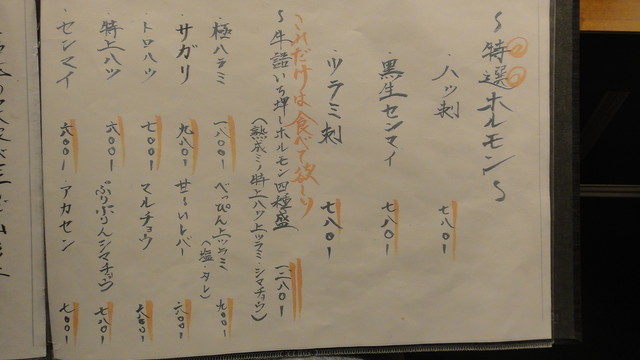 ～特選ホルモン～
・ハツ刺 七八〇ー
・黒生センマイ 七八〇ー
・ツラミ刺 七八〇ー
これだけは食べて接ーり
～牛語いち押しホルモン四種盛 一二八〇ー
（熟成ミノ・特上ハツ・上ツラミ・シマチョウ）
・極ハラミ 一八〇〇ー
べっぴん上ツラミ 九〇〇ー
（塩・タレ）
・サガリ 九八〇ー
甘〜いレバー 六〇〇ー
・トロハツ 七〇〇ー
マルチョウ 六八〇ー
・特上ハツ 六〇〇ー
ぷりぷりんシマチョウ 七八〇ー
・センマイ 六〇〇ー
アカセン 七〇〇ー